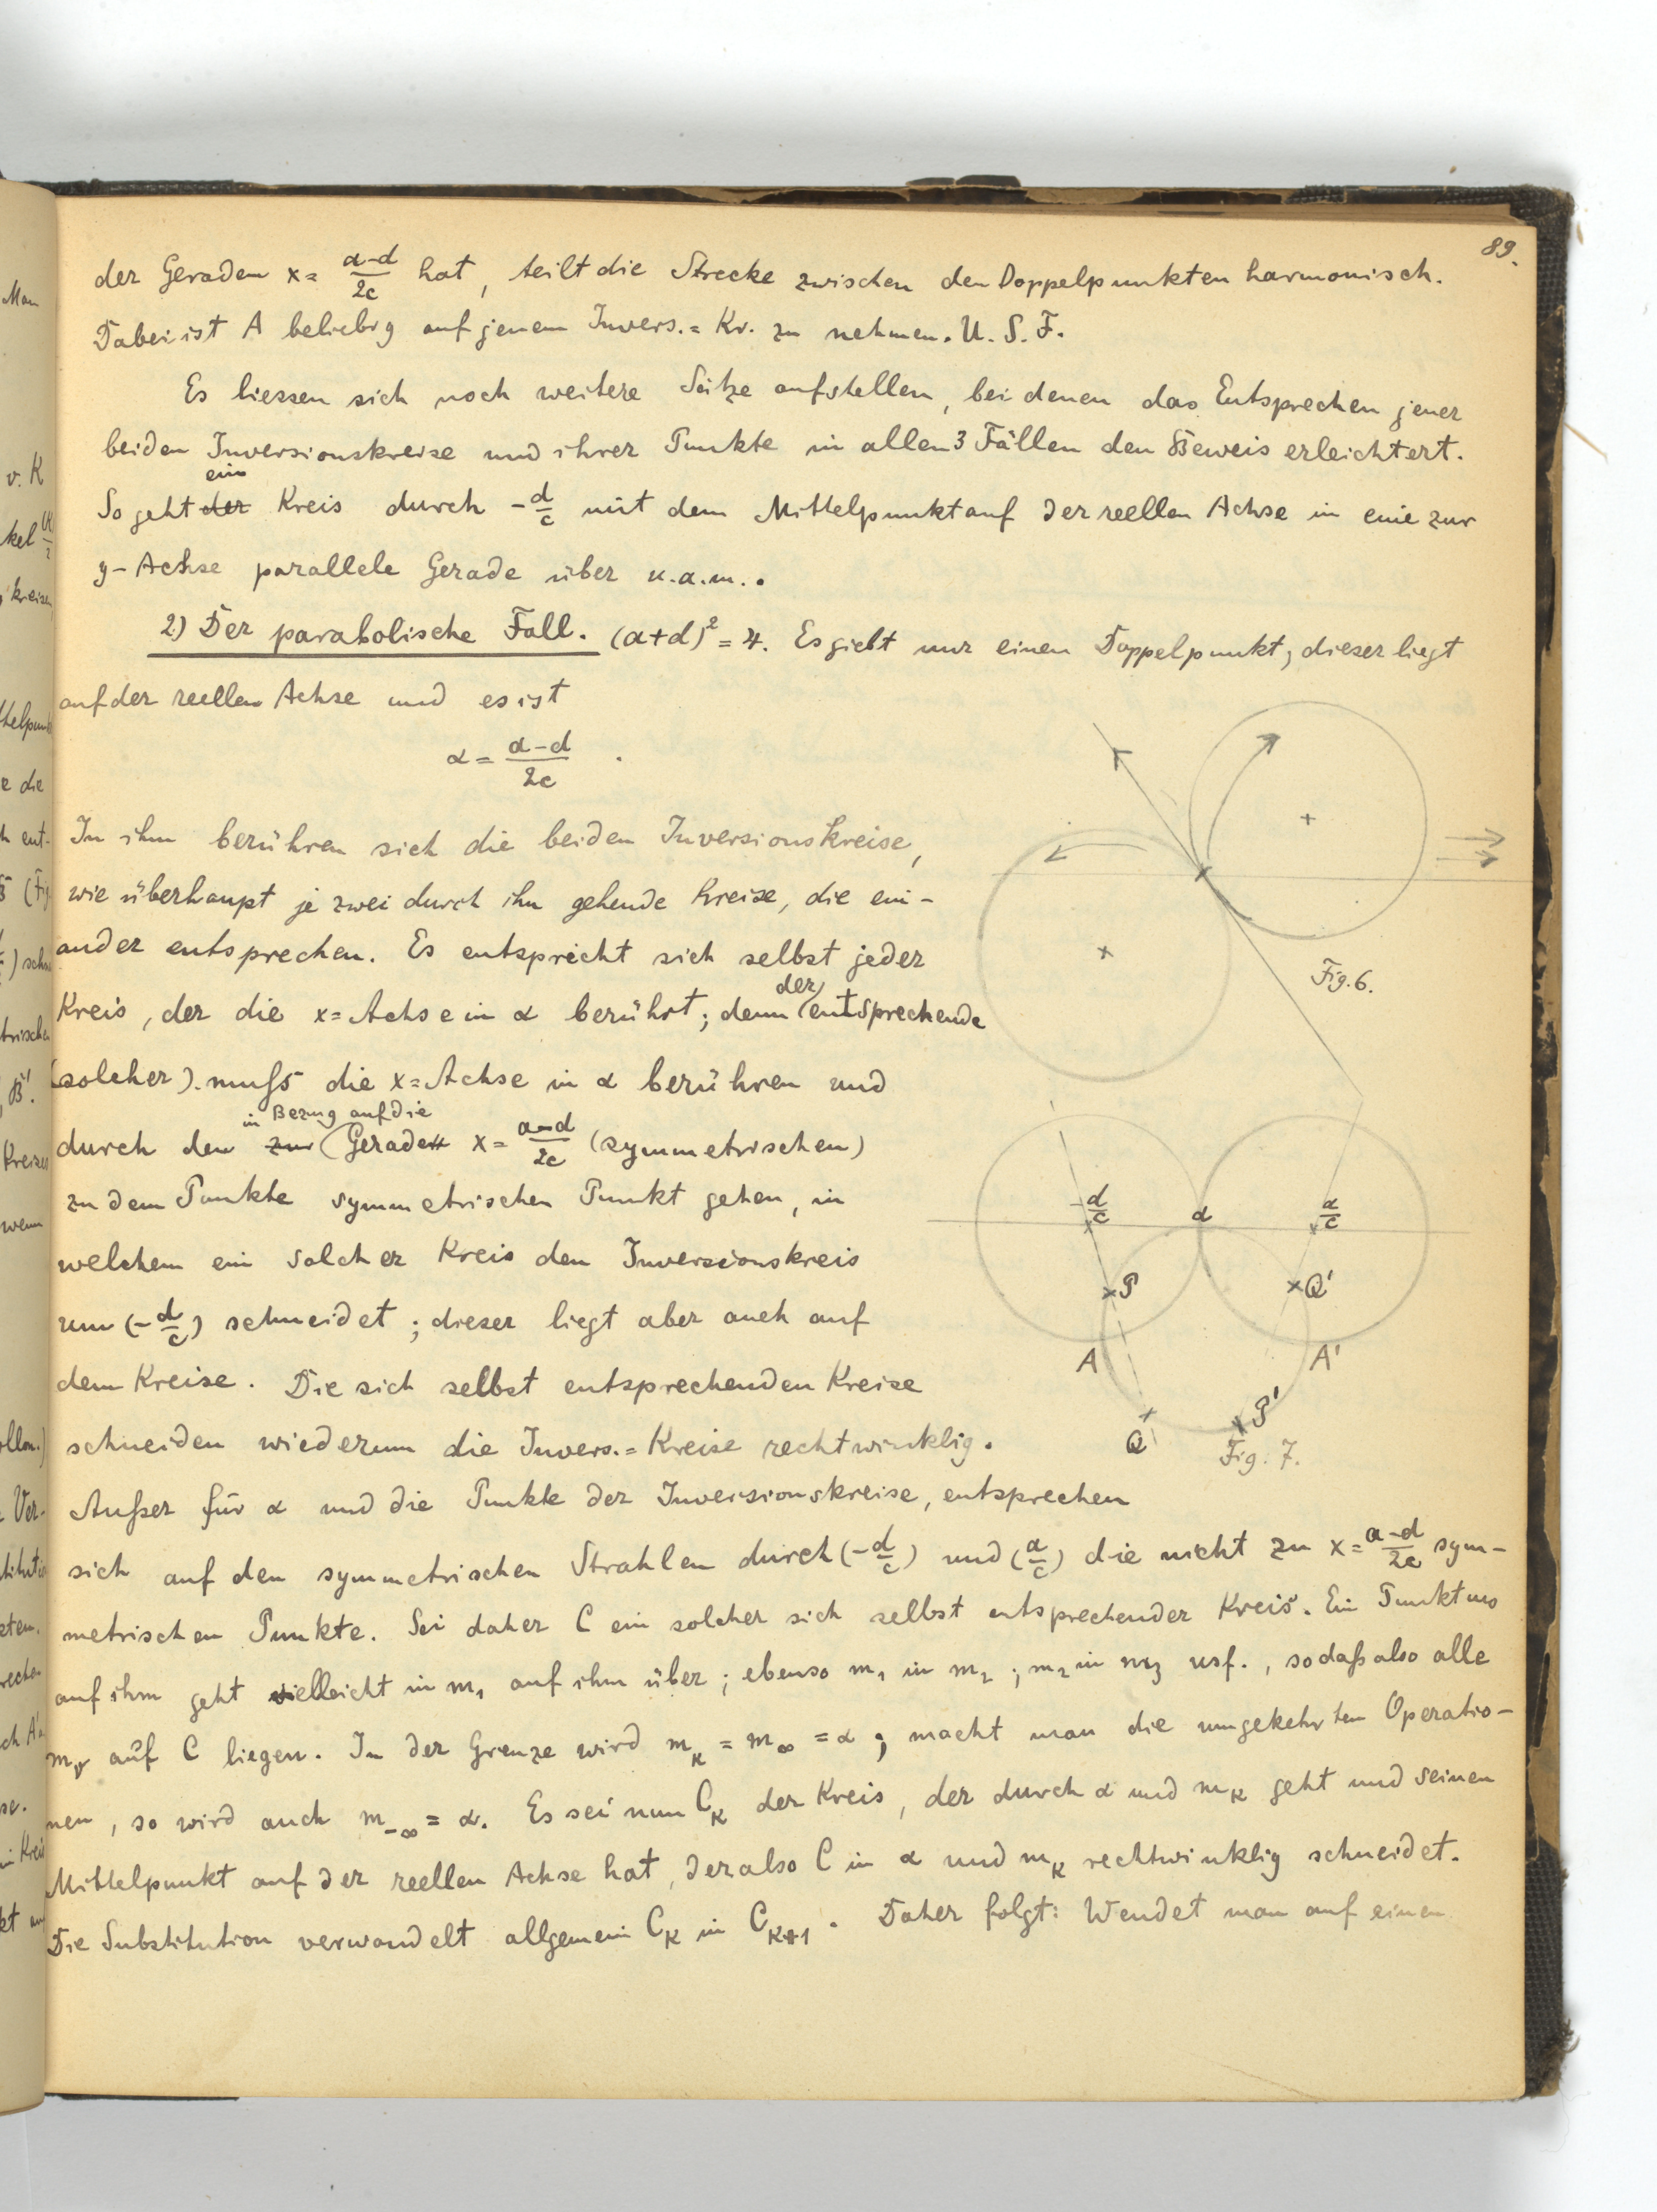 89.
der Geraden x = (a-d)/2c hat, teilt die Strecke zwischen den Doppelpunkten harmonisch.
Dabei ist A beliebig auf jenem Invers.= Kr. zu nehmen. U. S. F.
Es liessen sich noch weitere Sätze aufstellen, bei denen das Entsprechen jener
beiden Inversionskreise und ihrer Punkte in allen 3 Fällen den Beweis erleichtert.
ein
So geht der Kreis durch -d/c mit dem Mittelpunkt auf der reellen Achse in eine zur
y-Achse parallele Gerade über u.a.m..
2.) Der parabolische Fall. (a+d)² = 4. Es giebt nur einen Doppelpunkt, dieser liegt
auf der reellen Achse und es ist
α = (a-d)/2c .
In ihm berühren sich die beiden Inversionskreise,
wie überhaupt je zwei durch ihn gehende Kreise, die ein-
ander entsprechen. Es entspricht sich selbst jeder
der
Kreis, der die x=Achse in α berührt; denn (entsprechende
(solcher). muß die x=Achse in α berühren und
in Bezug auf die
durch den zur (Geraden x = (a-d)/2c (symmetrischen)
zu dem Punkte symmetrischen Punkt gehen, in
welchem ein solcher Kreis den Inversionskreis
um (-d/c) schneidet; dieser liegt aber auch auf
dem Kreise. Die sich selbst entsprechenden Kreise
schneiden wiederum die Invers.=Kreise rechtwinklig.
Außer für α und die Punkte der Inversionskreise, entsprechen
sich auf den symmetrischen Strahlen durch (-d/c) und (a/c) die nicht zu x = (a-d)/2c sym-
metrischen Punkte. Sei daher C ein solcher sich selbst entsprechender Kreis. Ein Punkt m₀
auf ihm geht vielleicht in m₁ auf ihm über; ebenso m₁ in m₂; m₂ in m₃ usf., sodaß also alle
mᵥ auf C liegen. In der Grenze wird m_κ = m_∞ = α; macht man die umgekehrten Operatio-
nen, so wird auch m_-∞ = α. Es sei nun C_κ der Kreis, der durch α und m_κ geht und seinen
Mittelpunkt auf der reellen Achse hat, der also C in α und m_κ rechtwinklig schneidet.
Die Substitution verwandelt allgemein C_κ in C_κ+1. Daher folgt: Wendet man auf einen
Fig. 6.
-d/c
α
a/c
P
Q'
A
A'
Q
P'
Fig. 7.